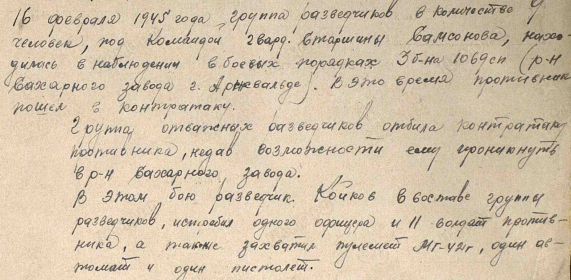 16 февраля 1945 года, группа разведчиков в количестве 9
человек, под командой гвард. Старшины Самсонова, нахо-
дилась в наблюдении в боевых порядках 3б-на 106дсп (р-н
Сахарного завода г. Арнсвальде). В это время противник
пошел в контратаку.
Группа отважных разведчиков отбила контратаку
противника, недав возможности ему проникнуть
в р-н Сахарного завода.
В этом бою разведчик Койков в составе группы
разведчиков, истребил одного офицера и 11 солдат против-
ника, а также захватил пулемет Мг-42г, один ав-
томат и один пистолет.